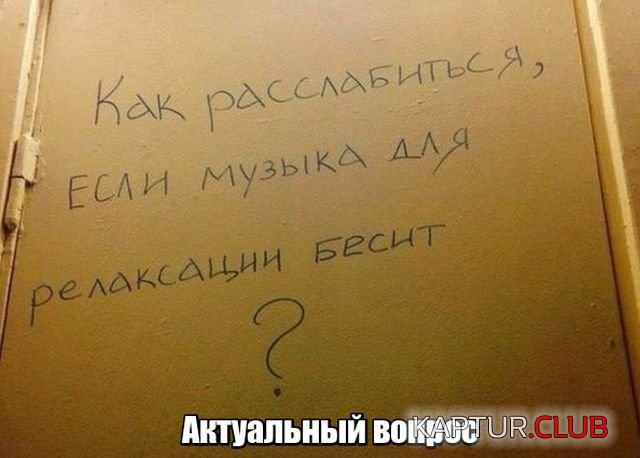 Как расслабиться,
Если музыка для
релаксации бесит
?
Актуальный вопрос
KAPTUR.CLUB